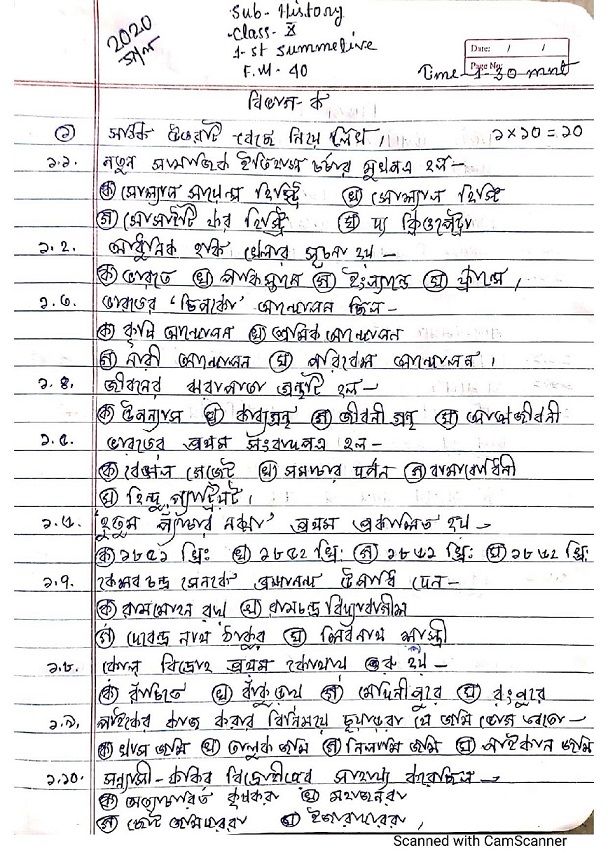 2020 সাল
Sub - History
Class - X
1-st summetive
F.M - 40
Date: / /
Page No:
Time - 1-30 mnt
বিভাগ - ক
১ সঠিক উত্তরটি বেছে নিয়ে লিখ। ১×১০=১০
১.১. নতুন সামাজিক ইতিহাস চর্চার মুখপত্র হল -
ক সোশ্যাল সায়েন্স হিস্ট্রি খ সোশ্যাল হিস্ট্রি
গ সোসাইটি ফর হিস্ট্রি ঘ দ্য
১.২. আধুনিক হকি খেলার সূচনা হয় -
ক ভারতে খ পাকিস্তানে গ ইংল্যান্ডে ঘ ফ্রান্সে।
১.৩. ভারতের 'চিপকো' আন্দোলন ছিল -
ক কৃষি আন্দোলন খ শ্রমিক আন্দোলন
গ নারী আন্দোলন ঘ পরিবেশ আন্দোলন।
১.৪. জীবনের ঝরাপাতা গ্রন্থটি হল -
ক উপন্যাস খ কাব্যগ্রন্থ গ জীবনী গ্রন্থ ঘ আত্মজীবনী
১.৫. ভারতের প্রথম সংবাদপত্র হল -
ক বেঙ্গল গেজেট খ সমাচার দর্পন গ বামাবোধিনী
ঘ হিন্দু প্যাট্রিয়ট।
'হুতুম প্যাঁচার নকশা' প্রথম প্রকাশিত হয় -
ক খ্রিঃ খ ১৮৫২ খ্রিঃ গ খ্রিঃ ঘ খ্রিঃ
১.৭. কেশব চন্দ্র সেনকে ব্রহ্মানন্দ উপাধি দেন -
ক রামমোহন রায় খ রামচন্দ্র বিদ্যাবাগীশ
গ দেবেন্দ্র নাথ ঠাকুর ঘ শিবনাথ শাস্ত্রী
১.৮. কোল বিদ্রোহ প্রথম কোথায় শুরু হয় -
ক রাঁচিতে খ বাঁকুড়ায় গ মেদিনীপুরে ঘ রংপুরে
১.৯. পাইকের কাজ করার বিনিময়ে চুয়াড়রা যে জমি ভোগ করতো -
ক খাস জমি খ তালুক জমি গ নিলামি জমি ঘ পাইকান জমি
১.১০. সন্ন্যাসী - ফকির বিদ্রোহীদের সাহায্য করেছিল -
ক অত্যাচারিত কৃষকরা খ মহাজনরা
গ ছোট জমিদাররা ঘ ইজারাদাররা।
Scanned with CamScanner